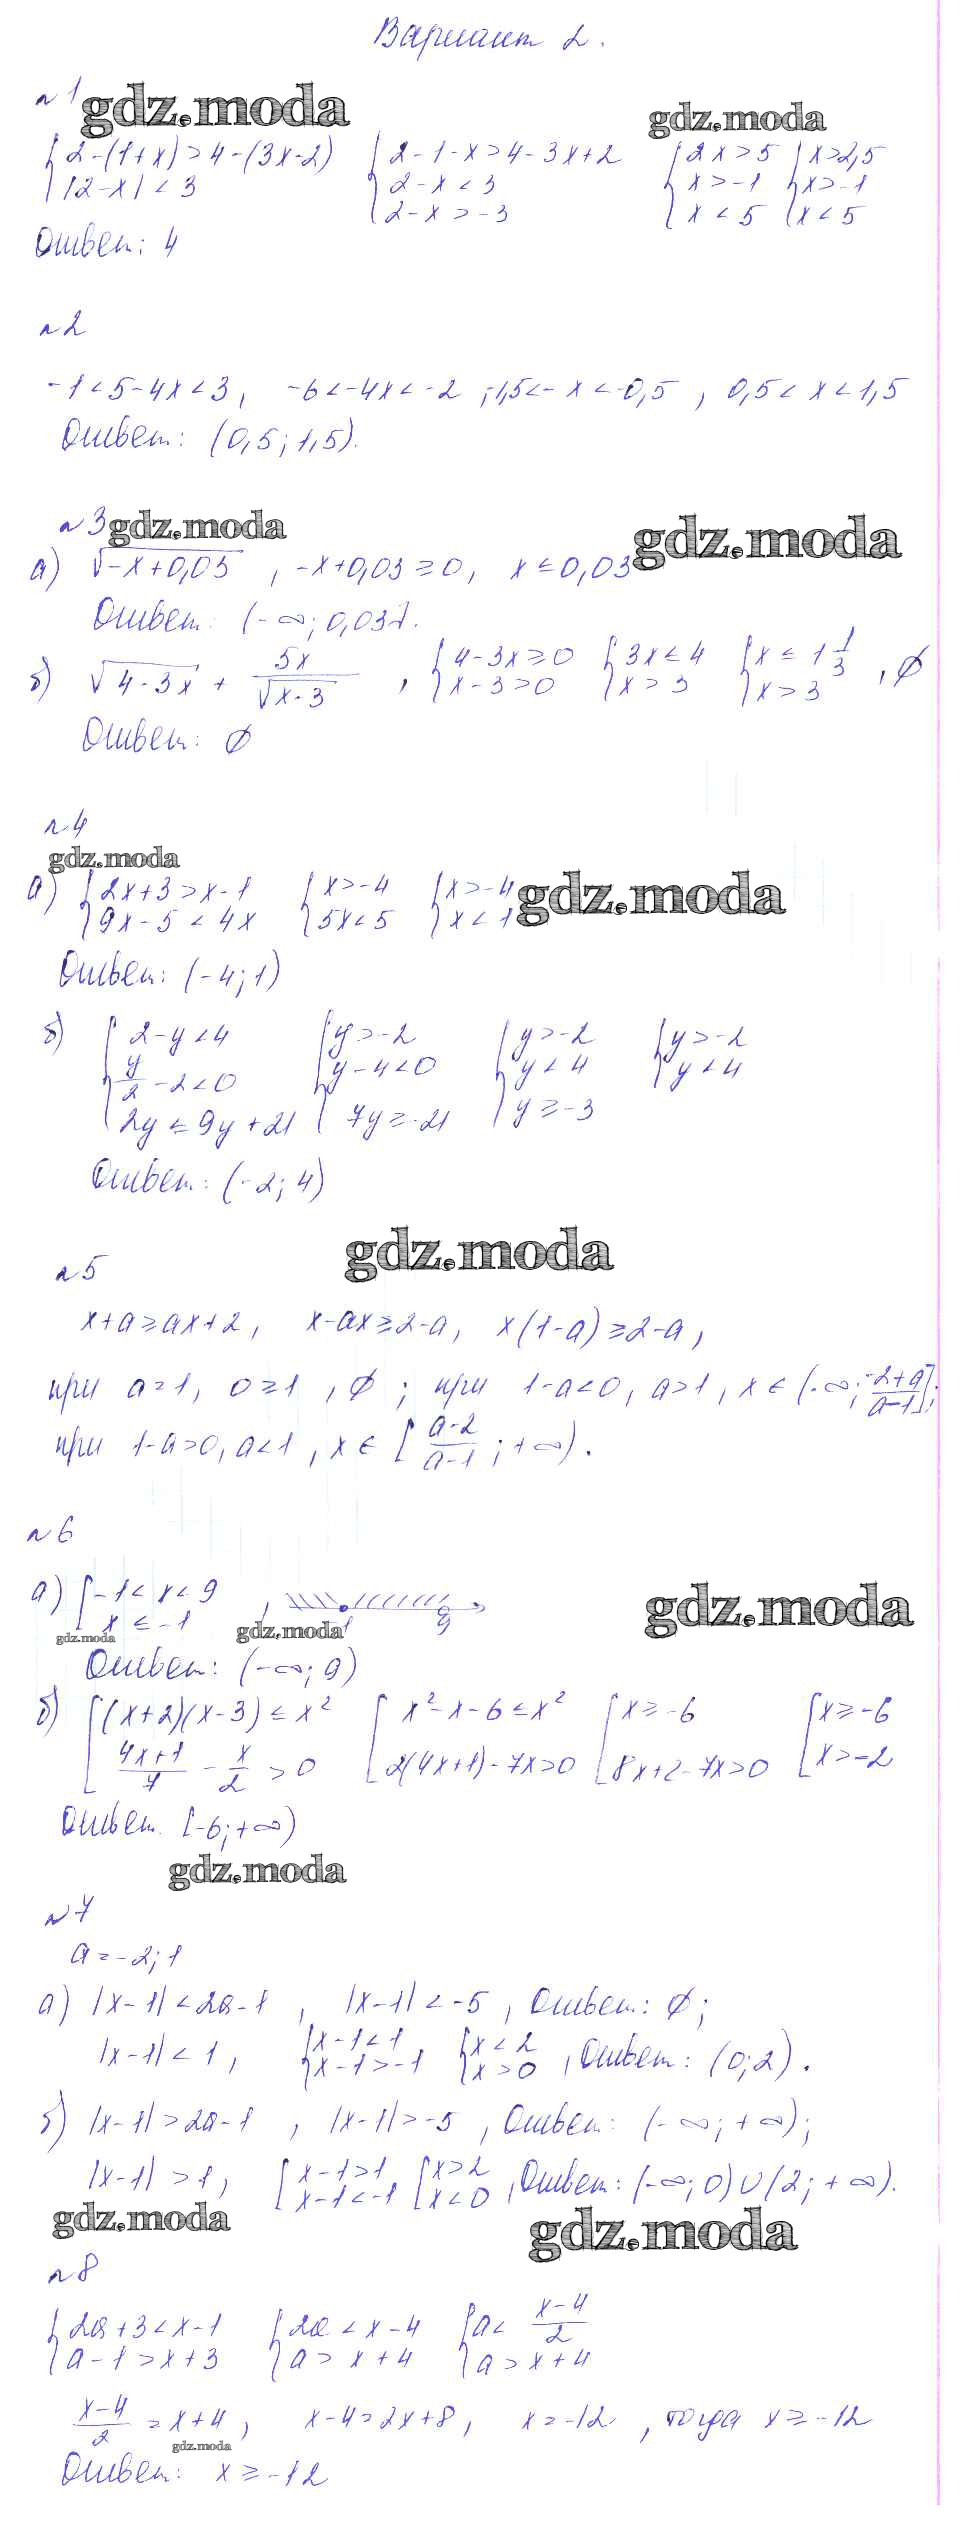 Вариант 2.
№1 gdz.moda gdz.moda
{2-(1+x)>4-(3x-2) {2-1-x>4-3x+2 {2x>5 {x>2,5
|2-x|<3 2-x<3 x>-1 x>-1
2-x>-3 x<5 x<5
Ответ: 4
№2
-1<5-4x<3, -6<-4x<-2, -1,5<-x<-0,5, 0,5<x<1,5
Ответ: (0,5; 1,5).
№3 gdz.moda gdz.moda
а) √-x+0,03, -x+0,03≥0, x≤0,03
Ответ: (-∞; 0,03].
б) √4-3x + 5x/√x-3, {4-3x≥0 {3x≤4 {x≤1 1/3, ∅
x-3>0 x>3 x>3
Ответ: ∅
№4
gdz.moda
а) {2x+3>x-1 {x>-4 {x>-4 gdz.moda
9x-5<4x 5x<5 x<1
Ответ: (-4; 1)
б) {2-y<4 {y>-2 {y>-2 {y>-2
y/2-2<0 y-4<0 y<4 y<4
2y≤9y+21 7y≥-21 y≥-3
Ответ: (-2; 4)
gdz.moda
№5
x+a≥ax+2, x-ax≥2-a, x(1-a)≥2-a,
при a=1, 0≥1, ∅; при 1-a<0, a>1, x∈(-∞; -2+a/a-1];
при 1-a>0, a<1, x∈[a-2/a-1; +∞).
№6
а) [-1<x<9, gdz.moda
x≤-1 9
gdz.moda gdz.moda
Ответ: (-∞; 9)
б) [(x+2)(x-3)≤x² [x²-x-6≤x² [x≥-6 [x≥-6
4x+1/7 - x/2>0 2(4x+1)-7x>0 8x+2-7x>0 x>-2
Ответ. [-6; +∞)
gdz.moda
№7
a=-2; 1
а) |x-1|<2a-1, |x-1|<-5, Ответ: ∅;
|x-1|<1, {x-1<1 {x<2, Ответ: (0; 2).
x-1>-1 x>0
б) |x-1|>2a-1, |x-1|>-5, Ответ: (-∞; +∞);
|x-1|>1, [x-1>1 [x>2, Ответ: (-∞; 0)∪(2; +∞).
x-1<-1 x<0
gdz.moda gdz.moda
№8
{2a+3<x-1 {2a<x-4 {a<x-4/2
a-1>x+3 a>x+4 a>x+4
x-4/2=x+4, x-4=2x+8, x=-12, тогда x≥-12
gdz.moda
Ответ: x≥-12